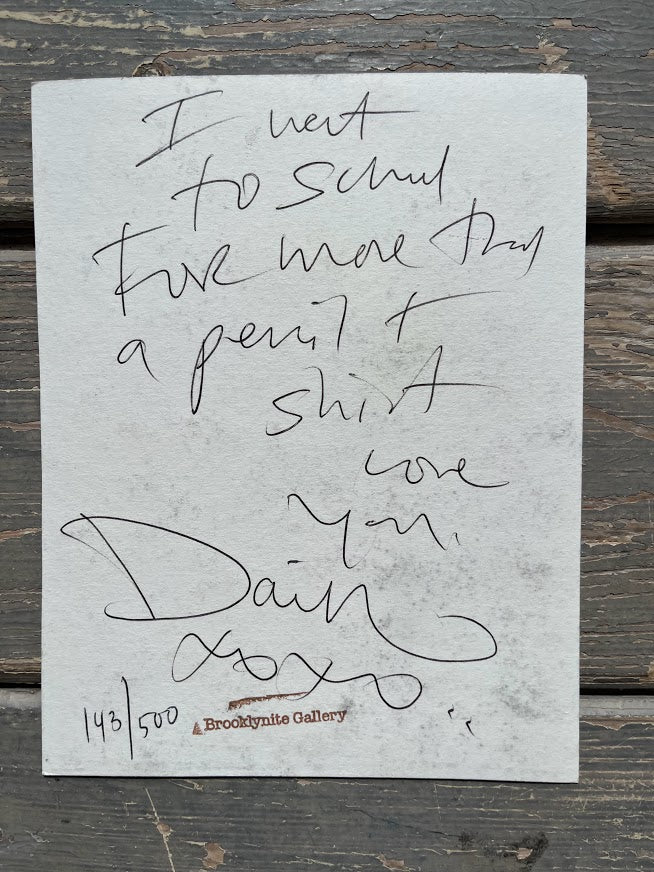 I went
to School
For more than
a pencil t
shirt
Love
You.
Dain
xoxo
143/500
Brooklynite Gallery